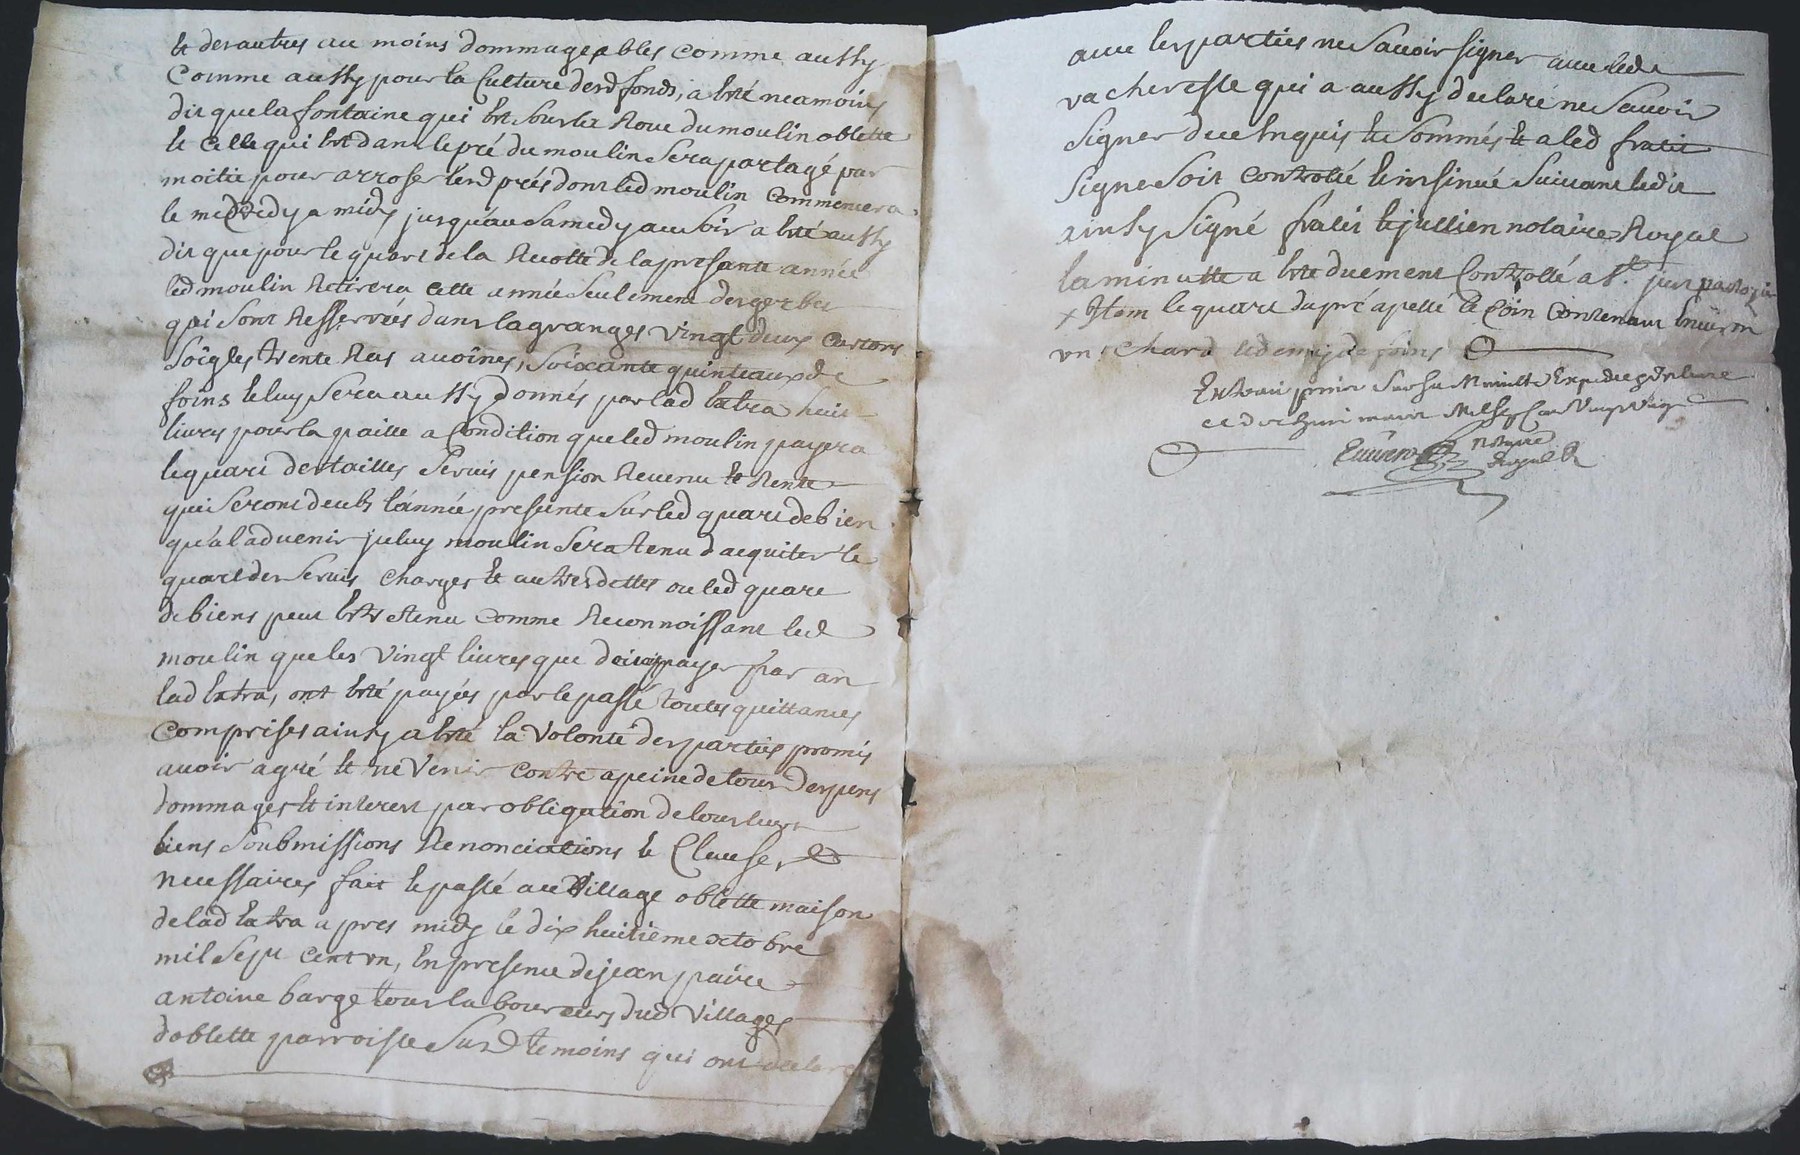 et des autres au moins dommageables comme aussy
Comme aussy pour la Culture desd fonds, a esté neamoins
dit que la fontaine qui est sous la Roue du moulin oblette
et Celle qui est dans le pré du moulin sera partagé par
moitié pour arroser lesd prés dont led moulin Commencera
le mecredy a midy jusqu'au Samedy au soir a esté aussy
dit que pour le quart de la Recotte de la presante année
led moulin Retirera cette année seulement des gerbes
qui sont Resserrées dans la granges vingt deux cartons
soigles trente Ras avoines, soixante quinteaux de
foins et luy sera aussy donnés par lad Extra huit
livres pour la paille a Condition que led moulin payera
le quart des tailles servis pension Revenu et Rente
qui seront deubs l'année presente sur led quart de bien
qu'à l'advenir jceluy moulin sera tenu d'aequiter le
quart des servis Charges et autres dettes ou led quart
de biens peut estre tenu comme Reconnoissant led
moulin que les vingt livres que doit payer par an
lad Extra, ont esté payées par le passé toutes quittances
Comprises ainsy a esté la volonté des parties promis
avoir agré et ne venir contre a peine de tous despens
dommages et interest par obligation de tous leurs
biens soubmissions Renonciations et Clauses
necessaires fait et passé au village oblette maison
de lad Extra apres midy le dix huitieme octobre
mil sept cent un, En presence de jean paire
antoine barge tous laboureurs dud village
d'oblette parroisse Susd temoins qui ont declaré
avec les parties ne savoir signer avec led
vacheresse qui a aussy declaré ne savoir
signer de ce Enquis et sommés et a led fratis
signe soit controllé et insinué suivant ledit
ainsy signé fratis et jullien notaire Royal
la minutte a esté duement Controllé a St. just
x Item le quart du pré apellé le Coin Contenant Environ
un Chard et demy de foins
Extrait sur sa Minutte Expediee
notaire
Royal